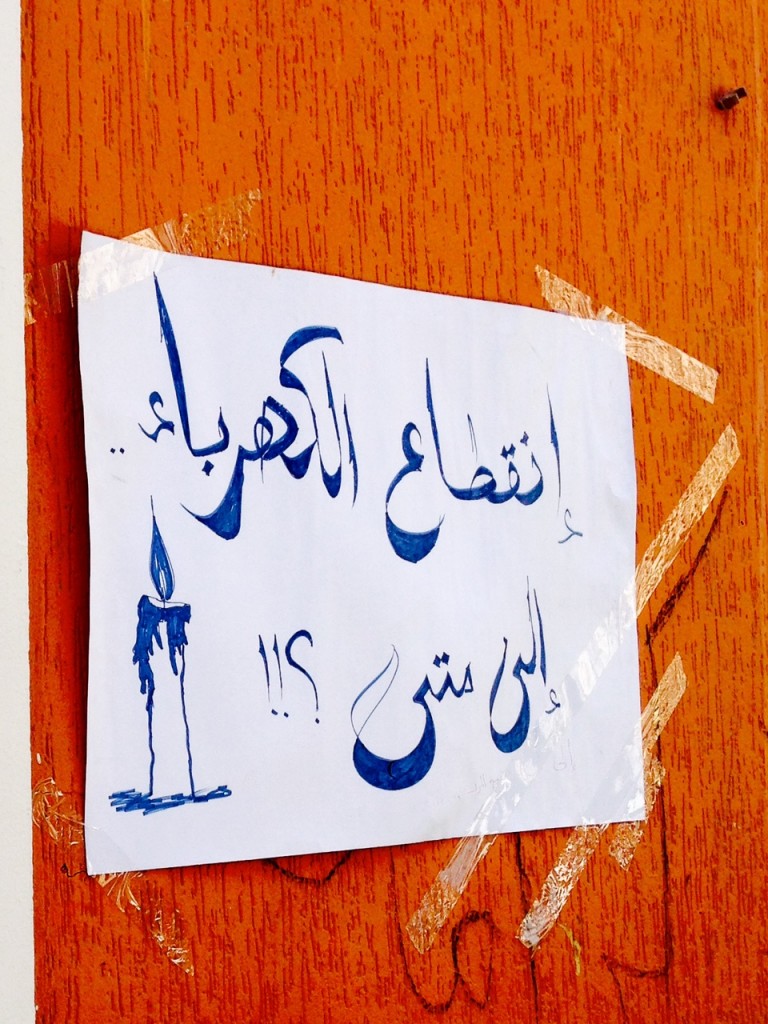 إنقطاع الكهرباء ..
إلى متى ؟!!